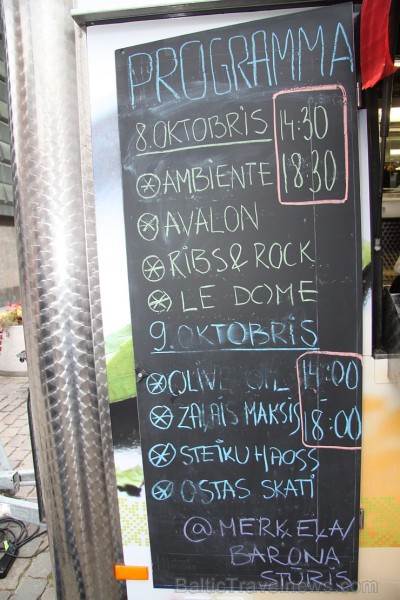 PROGRAMMA
8.OKTOBRIS 14:30
AMBIENTE 18:30
AVALON
RIBS & ROCK
LE DOME
9.OKTOBRIS
OLIVE OIL 14:00
ZAĻAIS MAKSIS 18:00
STEIKU HAOSS
OSTAS SKATI
@ MERĶEĻA/
BARONA
STŪRIS
BalticTravelnews.com